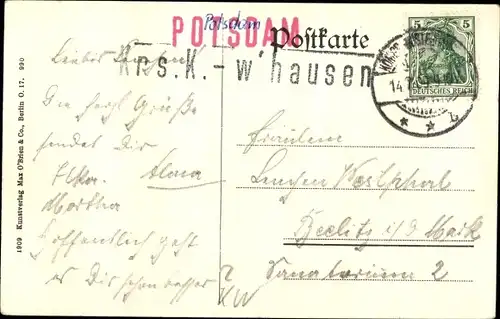 POTSDAM
Potsdam
Postkarte
Krs. K.-w'hausen
5 5
DEUTSCHES REICH
14
* * b
Liebes Lenchen
Die herzl. Grüße
sendet Dir
Alma
Martha
Hoffentlich geht
es Dir schon besser
Fräulein
Lenchen Westphal
Beelitz i/d Mark
Sanatorium 2
1909 Kunstverlag Max O'Brien & Co., Berlin O. 17. 990